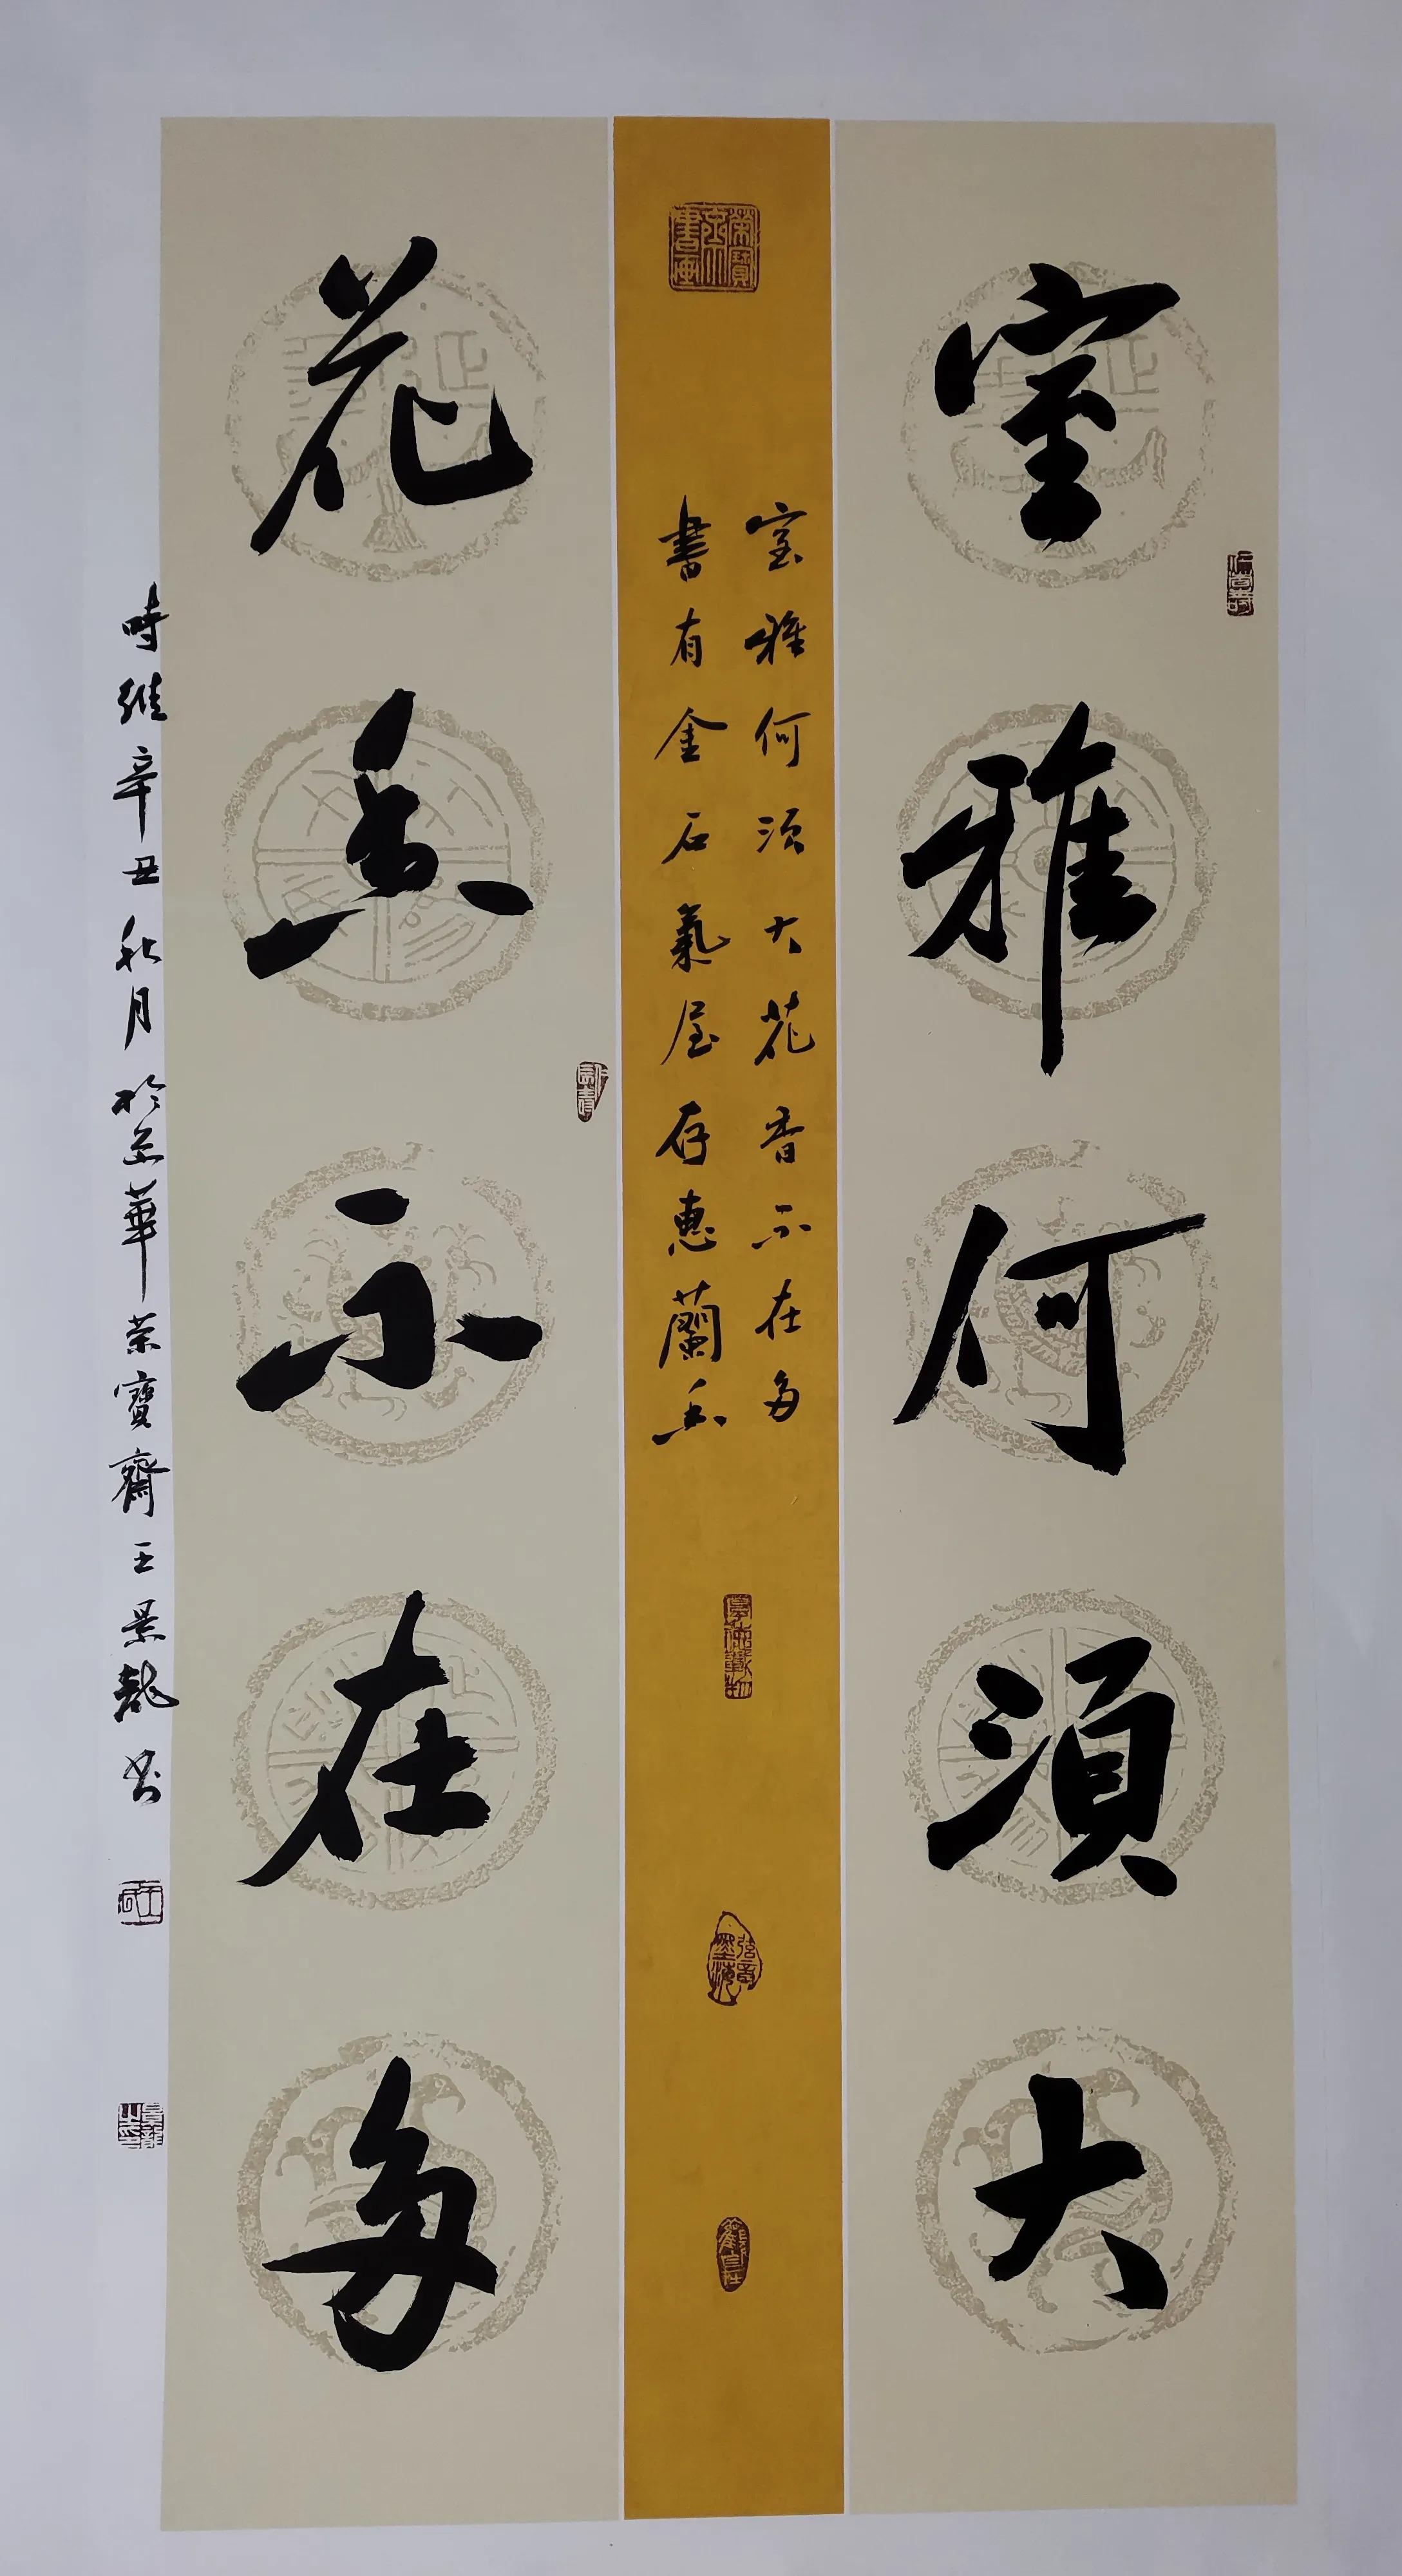 室雅何須大
室雅何須大花香不在多
書有金石氣屋存惠蘭香
花香不在多
時維辛丑秋月於京華荣寶齋王景龍书
榮寶齋書画
厚德載物